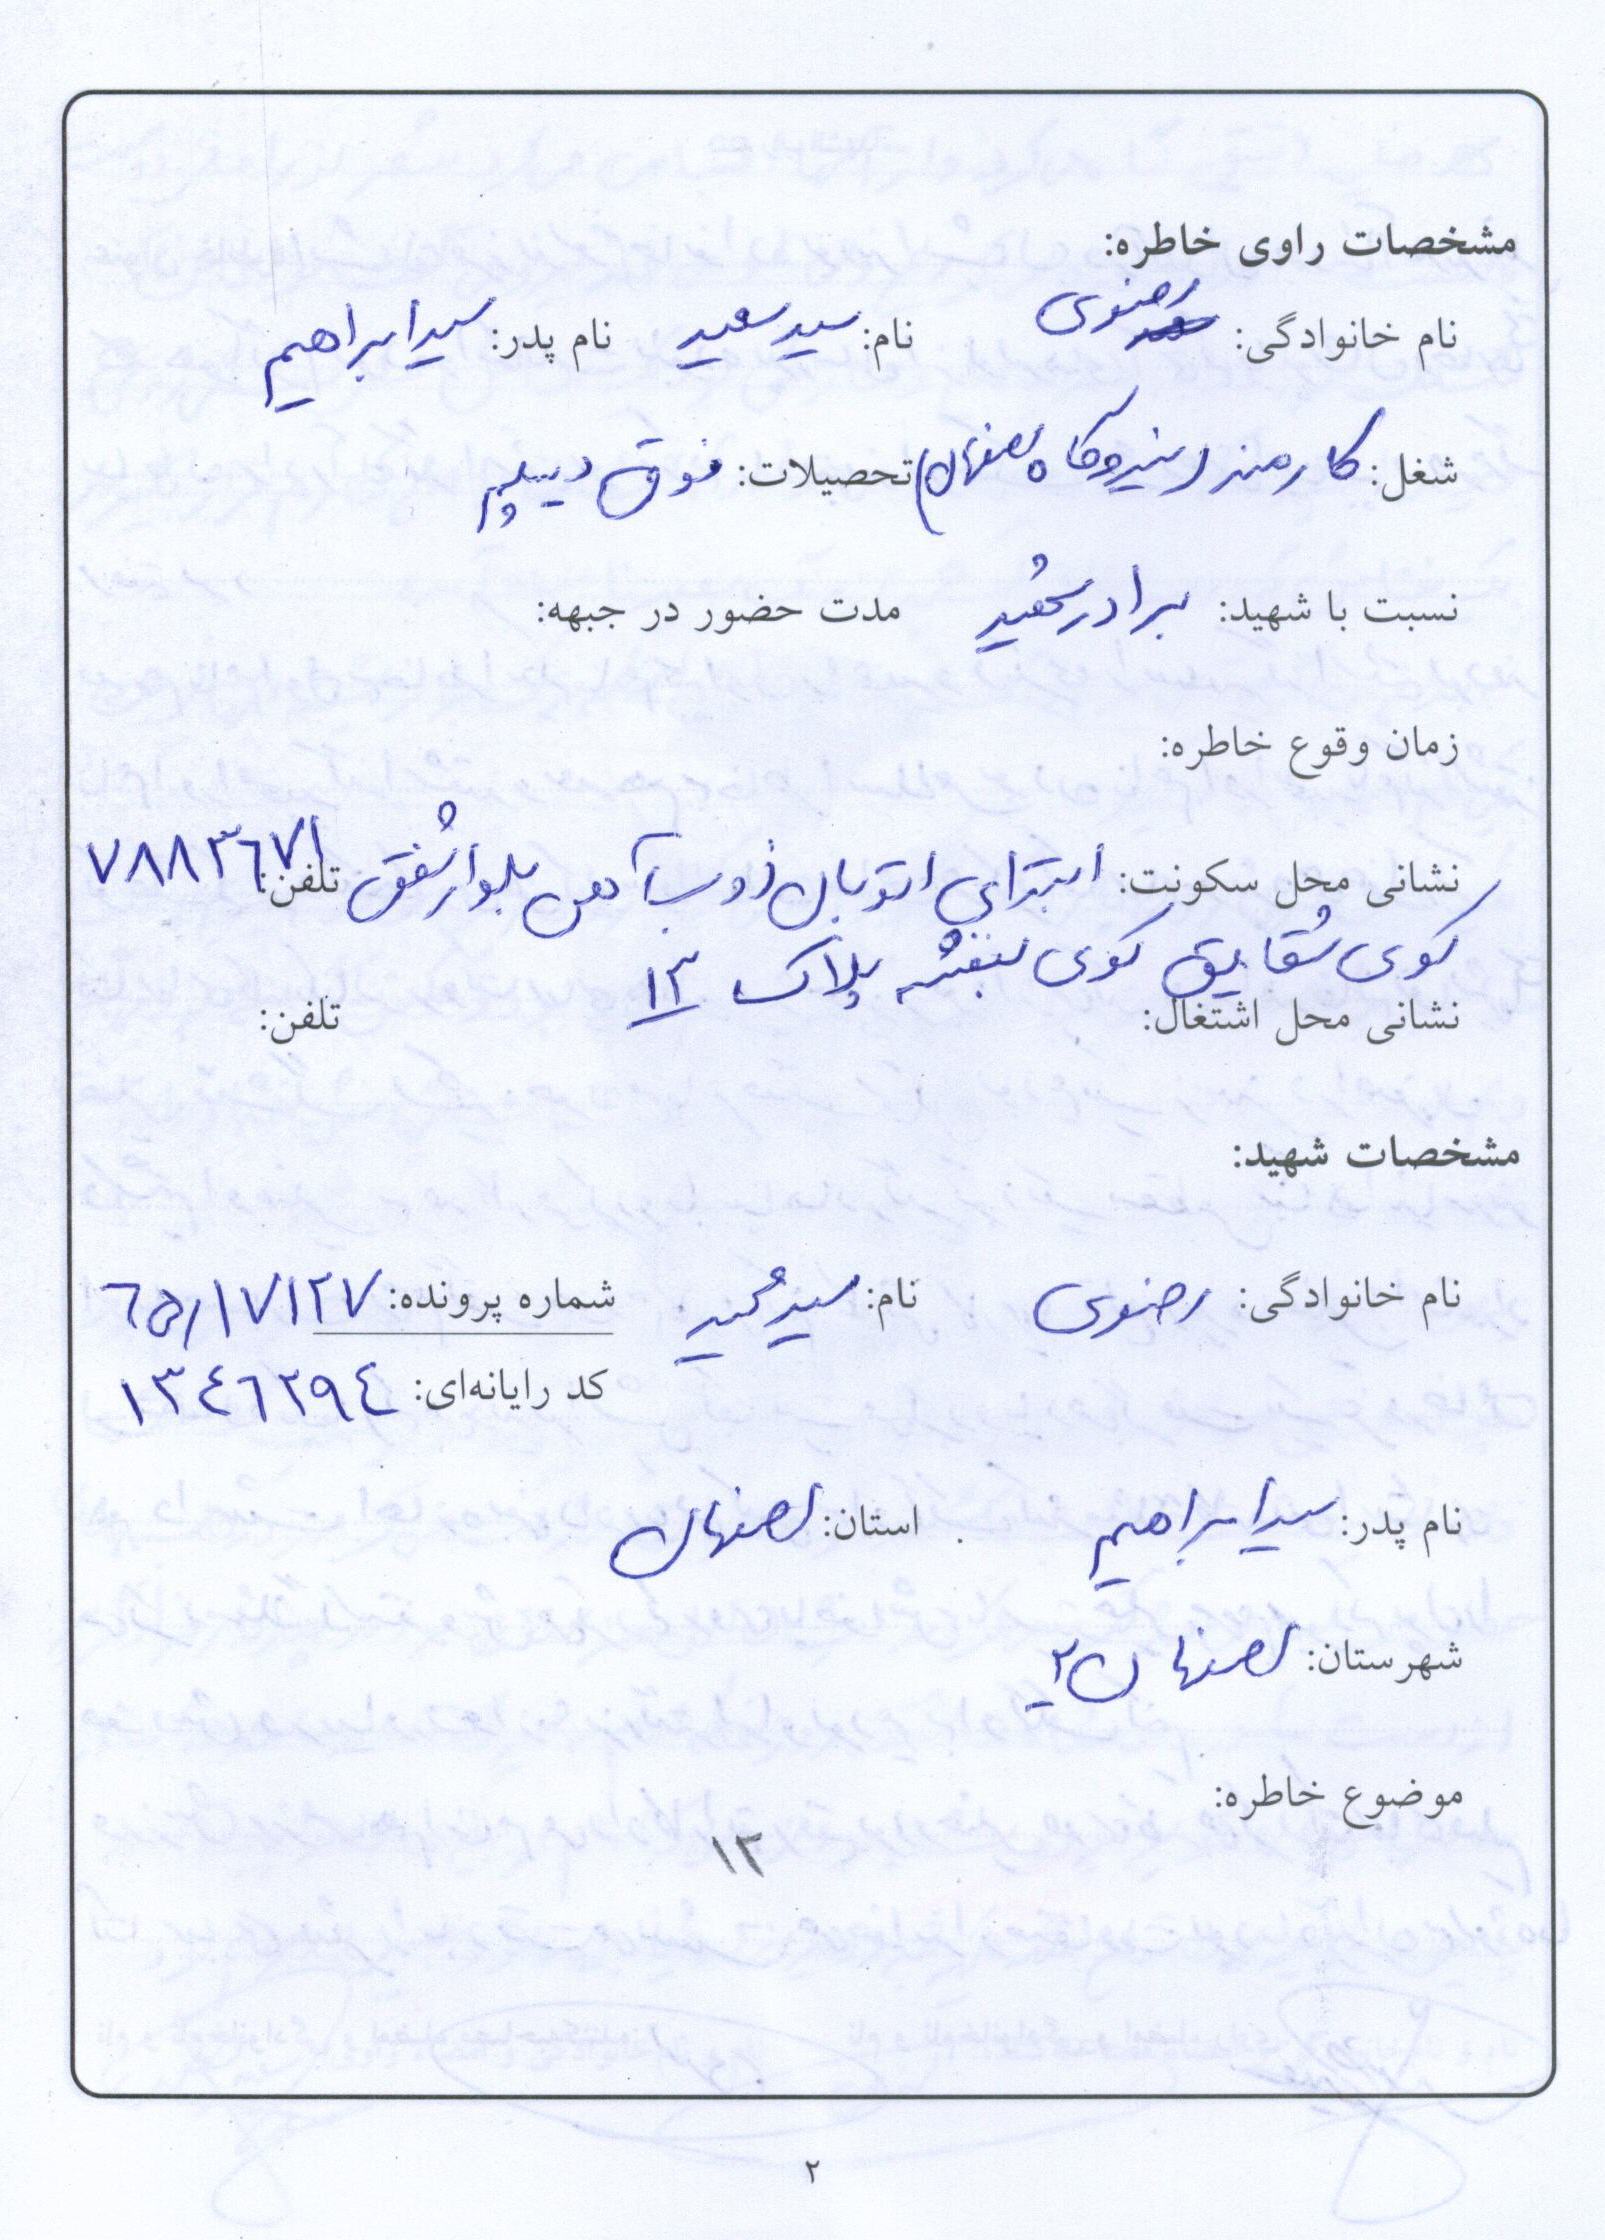 مشخصات راوی خاطره:
نام خانوادگی: رضوی نام: سید سعید نام پدر: سید ابراهیم
شغل: کارمند (نیروگاه اصفهان) تحصیلات: فوق دیپلم
نسبت با شهید: برادر شهید مدت حضور در جبهه:
زمان وقوع خاطره:
نشانی محل سکونت: ابتدای اتوبان ذوب آهن بلوار شفق تلفن: ۷۸۸۳۶۷۱
کوی شقایق کوی بنفشه پلاک ۱۳
نشانی محل اشتغال: تلفن:
مشخصات شهید:
نام خانوادگی: رضوی نام: سید مجید شماره پرونده: ۶۵/۱۷۱۲۷
کد رایانه‌ای: ۱۳۴۶۲۹۴
نام پدر: سید ابراهیم استان: اصفهان
شهرستان: اصفهان ۲
موضوع خاطره:
۱۳
۲